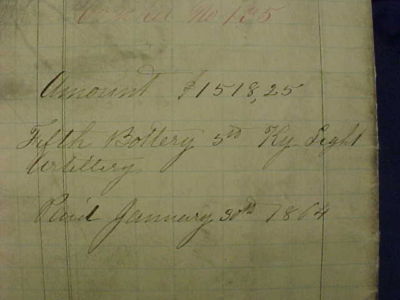 No 135
Amount $1518,25
Fifth Battery 5th Ky Light
Artillery
Paid January 30th 1864